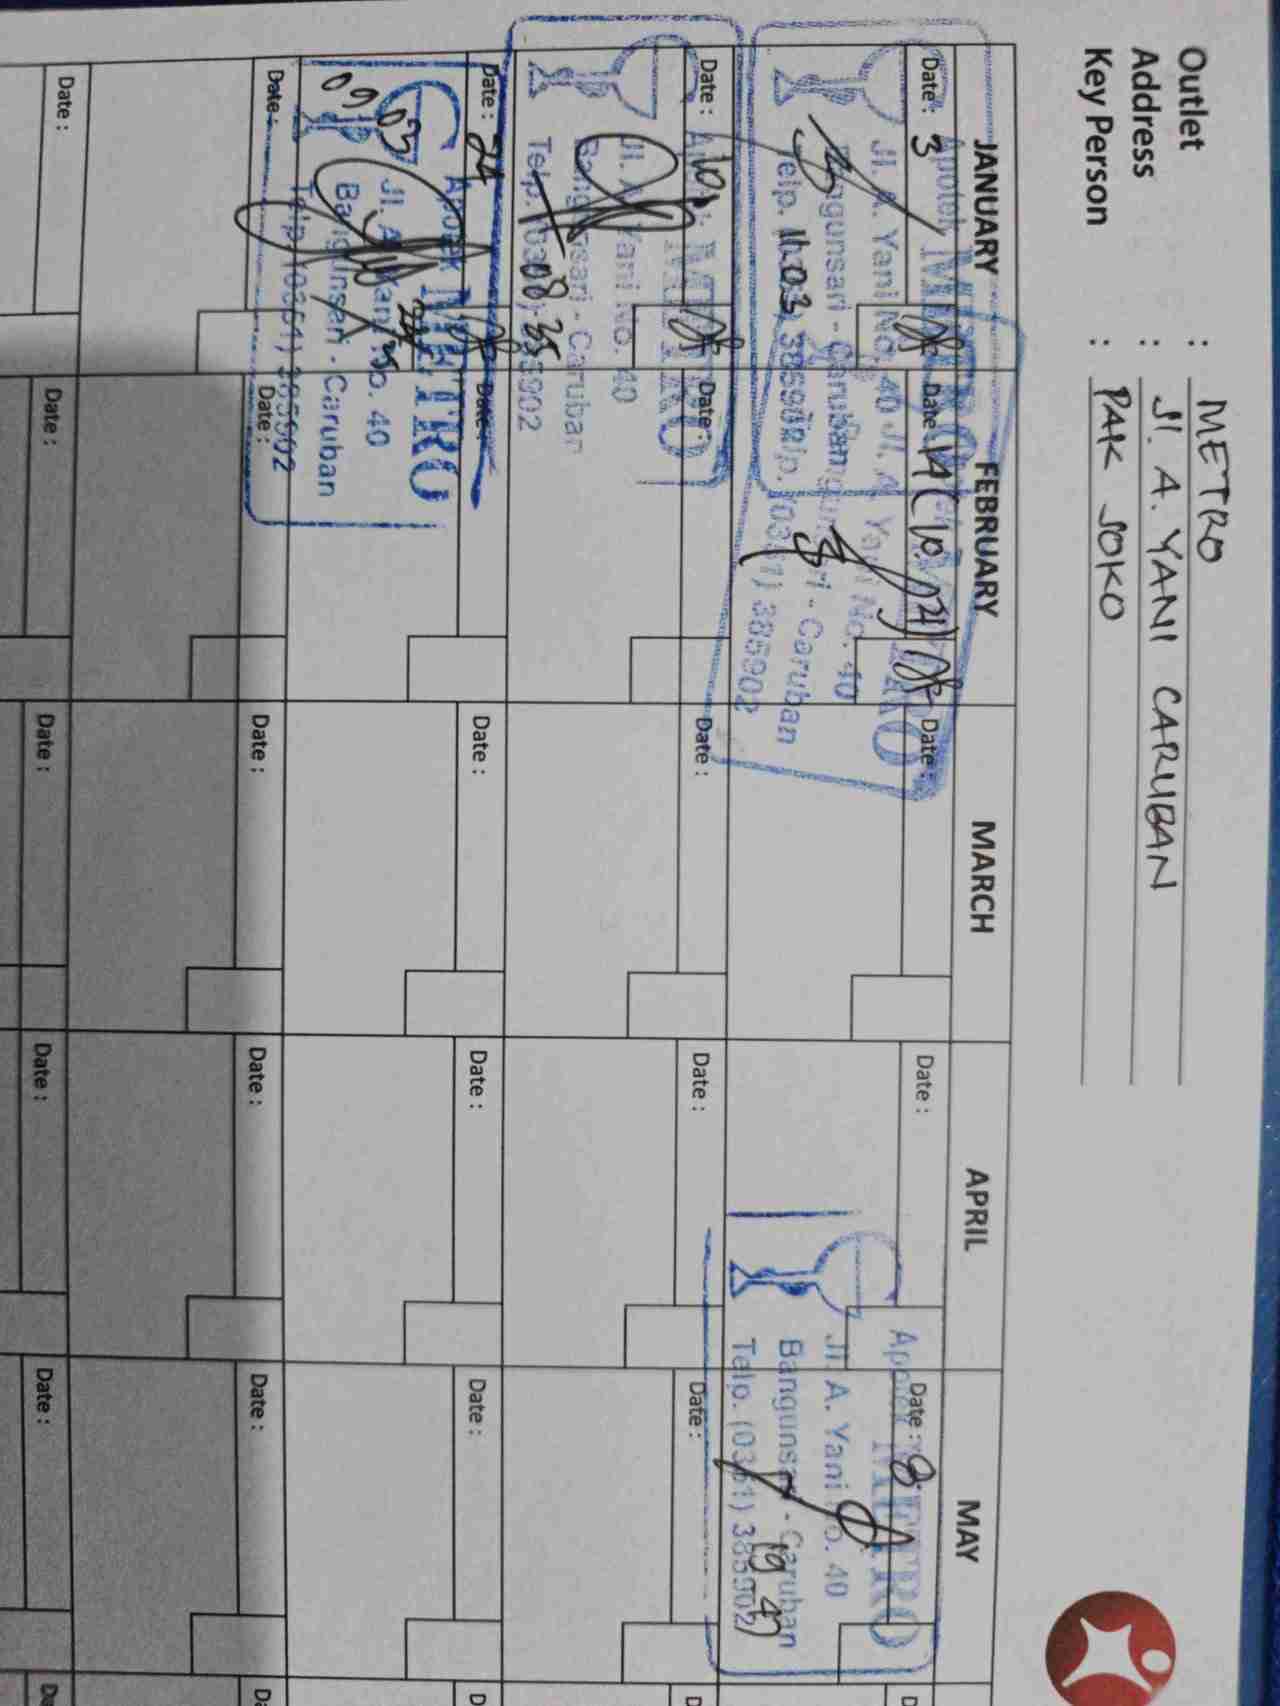 Outlet : METRO
Address : Jl. A. YANI CARUBAN
Key Person : PAK SOKO
JANUARY FEBRUARY MARCH APRIL MAY
Date : 3 Date : 14 Date : Date : Date : 8
Apotek METRO
Jl. A. Yani No. 40
Bangunsari - Caruban
Telp. 385902
Apotek METRO
Jl. A. Yani No. 40
Bangunsari - Caruban
Telp. (0351) 385902
Apotek METRO
Jl. A. Yani No. 40
Bangunsari - Caruban
Telp. (0351) 385902
Date : 10 Date : Date : Date : Date :
METRO
Jl. A. Yani No. 40
Bangunsari - Caruban
Telp.
Date : 24 Date : Date : Date : Date :
Apotek METRO
Jl. A. Yani No. 40
Bangunsari - Caruban
Telp. (0351) 385902
Date : Date : Date : Date : Date :
Date : Date : Date : Date : Date :